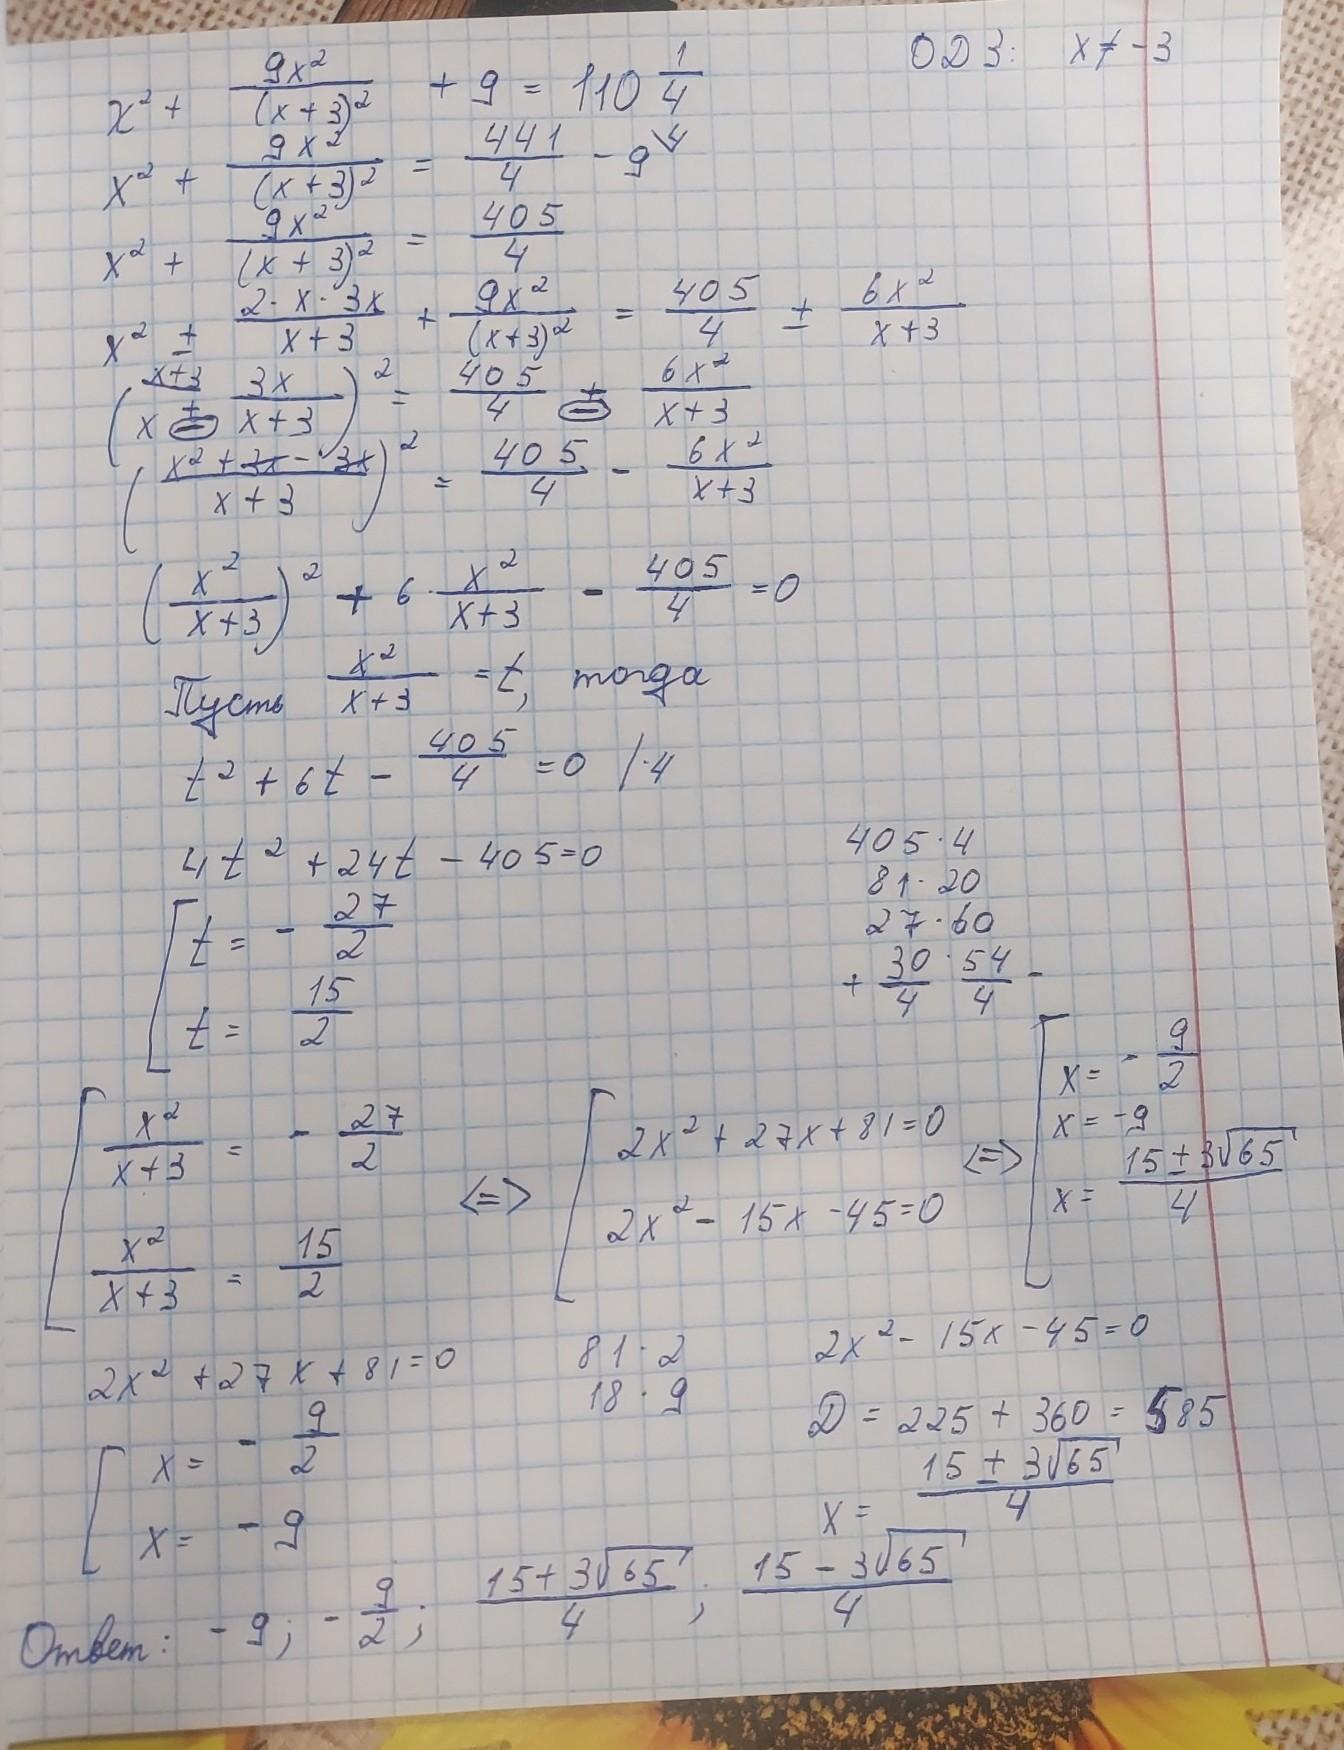 x² + 9x²/(x+3)² + 9 = 110 1/4    ОДЗ: x ≠ -3
x² + 9x²/(x+3)² = 441/4 - 9\4
x² + 9x²/(x+3)² = 405/4
x² ± 2·x·3x/(x+3) + 9x²/(x+3)² = 405/4 ± 6x²/(x+3)
(x\x+3 ± 3x/(x+3))² = 405/4 ± 6x²/(x+3)
((x²+3x-3x)/(x+3))² = 405/4 - 6x²/(x+3)
(x²/(x+3))² + 6·x²/(x+3) - 405/4 = 0
Пусть x²/(x+3) = t, тогда
t² + 6t - 405/4 = 0 /·4
4t² + 24t - 405 = 0
[ t = - 27/2
t = 15/2
405·4
81·20
27·60
+ 30/4 · 54/4 -
[ x²/(x+3) = - 27/2
x²/(x+3) = 15/2
<=> [ 2x² + 27x + 81 = 0
2x² - 15x - 45 = 0
<=> [ x = - 9/2
x = -9
x = (15 ± 3√65)/4
2x² + 27x + 81 = 0
81·2
18·9
[ x = - 9/2
x = - 9
2x² - 15x - 45 = 0
D = 225 + 360 = 585
x = (15 ± 3√65)/4
Ответ: -9; - 9/2; (15+3√65)/4; (15-3√65)/4